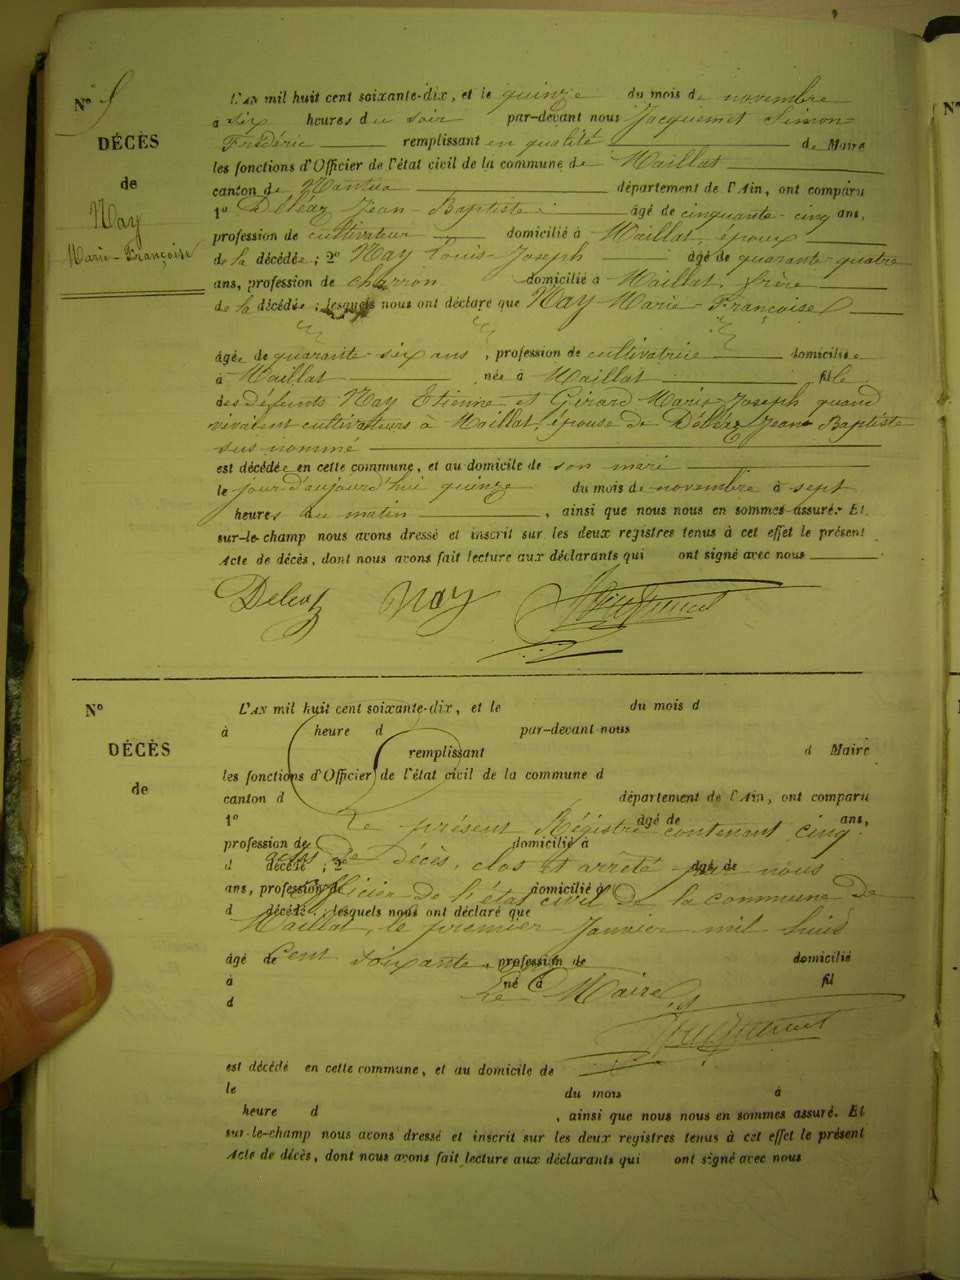 N° 5
DÉCÈS
de
Nay
Marie-Françoise
L'AN mil huit cent soixante-dix, et le quinze du mois de novembre
à six heures du soir par-devant nous Jacquemet Simon
Frédéric remplissant en qualité de Maire
les fonctions d'Officier de l'état civil de la commune de Maillat
canton de Nantua département de l'Ain, ont comparu
1° Déléaz Jean-Baptiste âgé de cinquante-cinq ans,
profession de cultivateur domicilié à Maillat, époux
de la décédée ; 2° Nay Louis-Joseph âgé de quarante-quatre
ans, profession de charron domicilié à Maillat, frère
de la décédée ; lesquels nous ont déclaré que Nay Marie-Françoise
âgée de quarante-six ans, profession de cultivatrice domiciliée
à Maillat née à Maillat fille
des défunts Nay Etienne et Girard Marie-Joseph quand
vivaient cultivateurs à Maillat, épouse de Déléaz Jean Baptiste
sus nommé
est décédée en cette commune, et au domicile de son mari
le jour d'aujourd'hui quinze du mois de novembre à sept
heures du matin, ainsi que nous nous en sommes assuré. Et
sur-le-champ nous avons dressé et inscrit sur les deux registres tenus à cet effet le présent
Acte de décès, dont nous avons fait lecture aux déclarants qui ont signé avec nous
Deleaz Nay Jacquemet
N°
DÉCÈS
de
L'AN mil huit cent soixante-dix, et le du mois d
à heure d par-devant nous
remplissant d Maire
les fonctions d'Officier de l'état civil de la commune d
canton d département de l'Ain, ont comparu
1° âgé de ans,
Le présent Régistre contenant cinq
profession de domicilié à
actes de décès, clos et arrêté par nous
d décédé ; 2° âgé de
ans, profession de domicilié à
officier de l'état civil de la commune de
d décédé ; lesquels nous ont déclaré que
Maillat, le premier Janvier mil huit
cent soixante
âgé de , profession de domicilié
à né à fil
Le Maire
d
Jacquemet
est décédé en cette commune, et au domicile de
le du mois à
heure d , ainsi que nous nous en sommes assuré. Et
sur-le-champ nous avons dressé et inscrit sur les deux registres tenus à cet effet le présent
Acte de décès, dont nous avons fait lecture aux déclarants qui ont signé avec nous